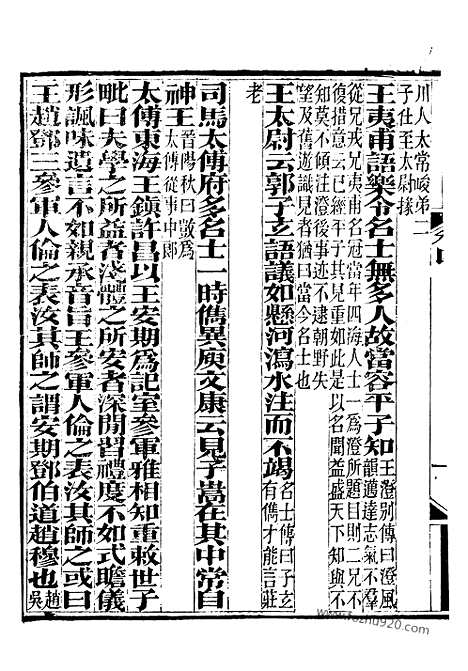 川人太常峻弟二
子仕至太尉掾
王夷甫語樂令名士無多人故當容平子知
王澄别傳曰澄風
韻邁達志氣不羣
從兄戎兄夷甫名冠當年四海人士一爲澄所題目則二兄不
復措意云已經平子其見重如此是以名聞益盛天下知與不
知莫不傾注澄後事迹不逮朝野失
望及舊遊識見者猶曰當今名士也
王太尉云郭子玄語議如懸河瀉水注而不竭
名士傳曰子玄
有儁才能言莊
老
司馬太傅府多名士一時儁異庾文康云見子嵩在其中常自
神王
晉陽秋曰敳爲
太傅從事中郎
太傅東海王鎮許昌以王安期爲記室參軍雅相知重敕世子
毗曰夫學之所益者淺體之所安者深閒習禮度不如式瞻儀
形諷味遺言不如親承音旨王參軍人倫之表汝其師之或曰
王趙鄧三參軍人倫之表汝其師之謂安期鄧伯道趙穆也
趙
吳
www.fozhu920.com